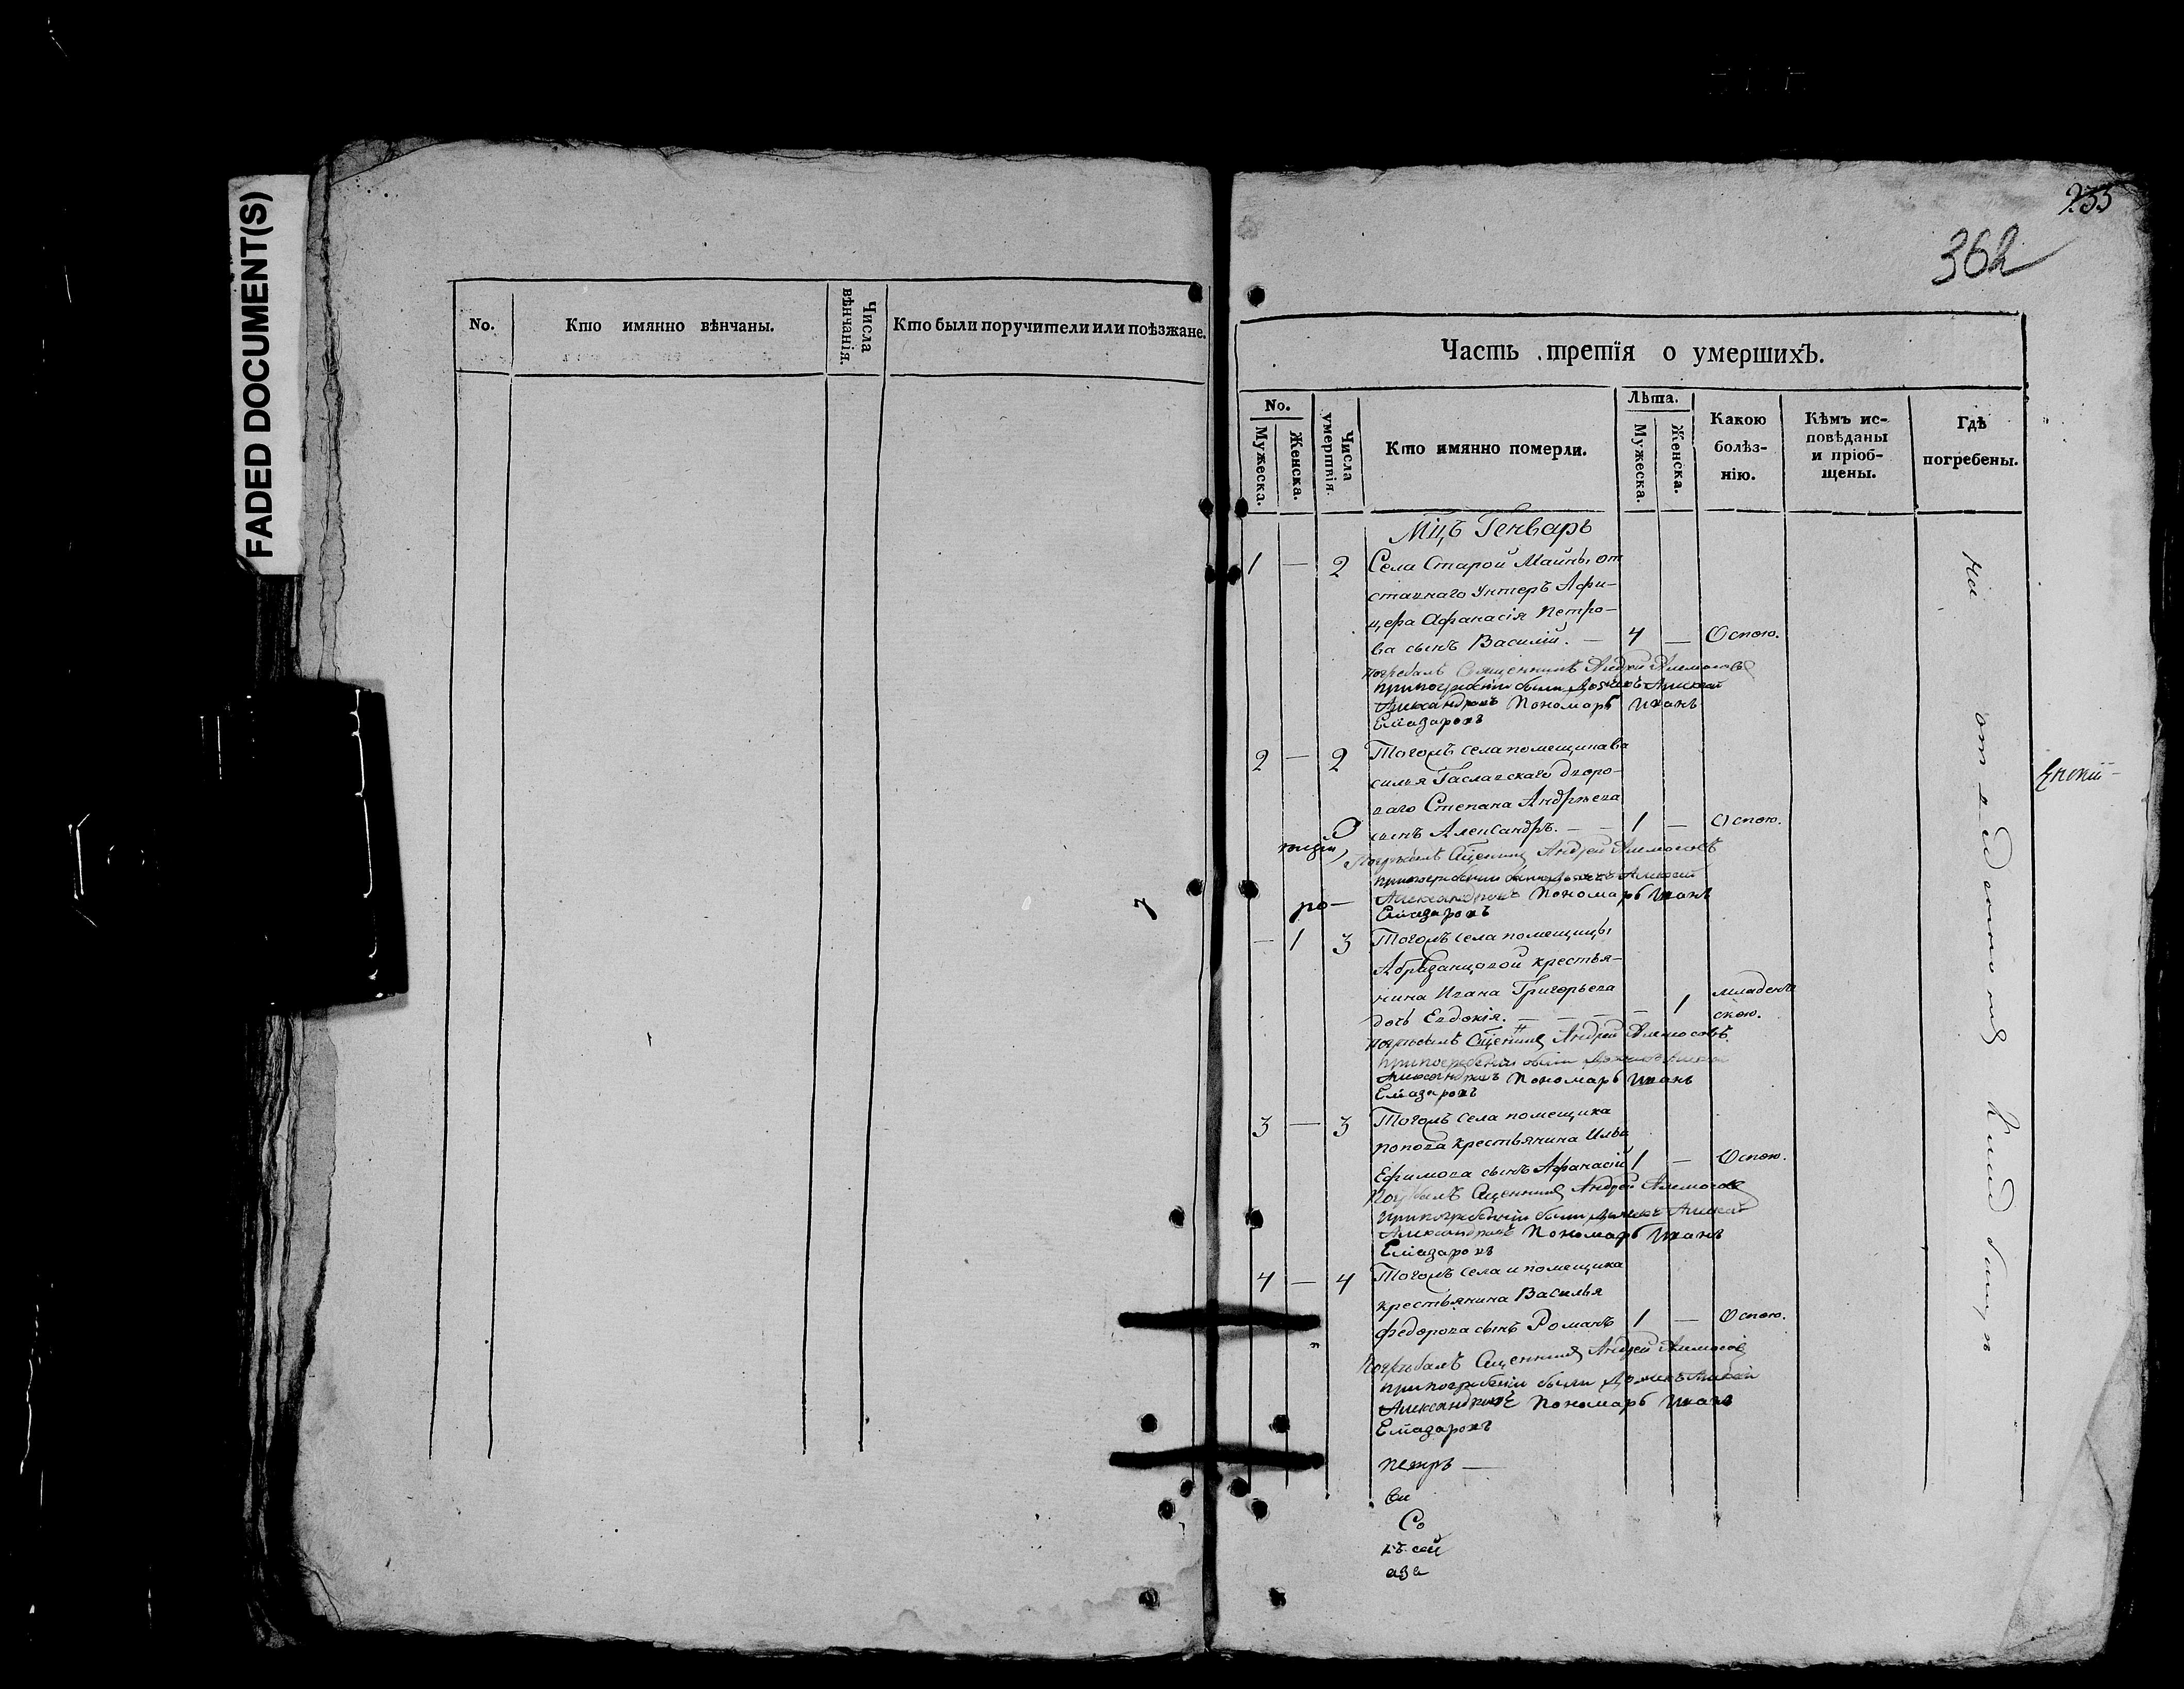 FADED DOCUMENT(S)
No.
Кто имянно вѣнчаны.
Числа вѣнчанія.
Кто были поручители или поѣзжане.
233
362
Часть третія о умершихъ.
No.
Мужеска.
Женска.
Числа умертвія.
Кто имянно померли.
Лѣта.
Мужеска.
Женска.
Какою болѣз-
нію.
Кѣмъ ис-
повѣданы
и пріоб-
щены.
Гдѣ
погребены.
Мцъ Генварь
1 — 2 Села Старой Майны от
ставнаго Унтеръ Афи-
цера Афанасія Петро-
ва сынъ Василій. — 4 — Оспою.
погребалъ Священникъ Андрей
при погребеніи были Дьячекъ Алексѣй
Александровъ Пономарь Иванъ
Елиазаровъ
2 — 2 Тогожъ села помещика Ва
силья дворо-
ваго Степана Андрѣева
сынъ Александръ. — — 1 — Оспою.
Погребалъ Сщенникъ Андрей
при погребеніи были Дьячекъ Алексѣй
ро-
Александровъ Пономарь Иванъ
Елиазаровъ
— 1 3 Тогожъ села помещицы
крестья-
нина Ивана Григорьева
дочь Евдокія. — — — — 1 младенче
скою.
Погребалъ Сщенникъ Андрей
при погребеніи были Дьячекъ Алексѣй
Александровъ Пономарь Иванъ
Елиазаровъ
3 — 3 Тогожъ села помещика
Попова крестьянина Ильи
Ефимова сынъ Афанасій 1 — Оспою.
Погребалъ Сщенникъ Андрей
при погребеніи были Дьячекъ Алексѣй
Александровъ Пономарь Иванъ
Елиазаровъ
4 — 4 Тогожъ села и помещика
крестьянина Василья
Федорова сынъ Романъ 1 — Оспою.
Погребалъ Сщенникъ Андрей
при погребеніи были Дьячекъ Алексѣй
Александровъ Пономарь Иванъ
Елиазаровъ
На отведенномъ кладбищѣ
Петръ —
Со